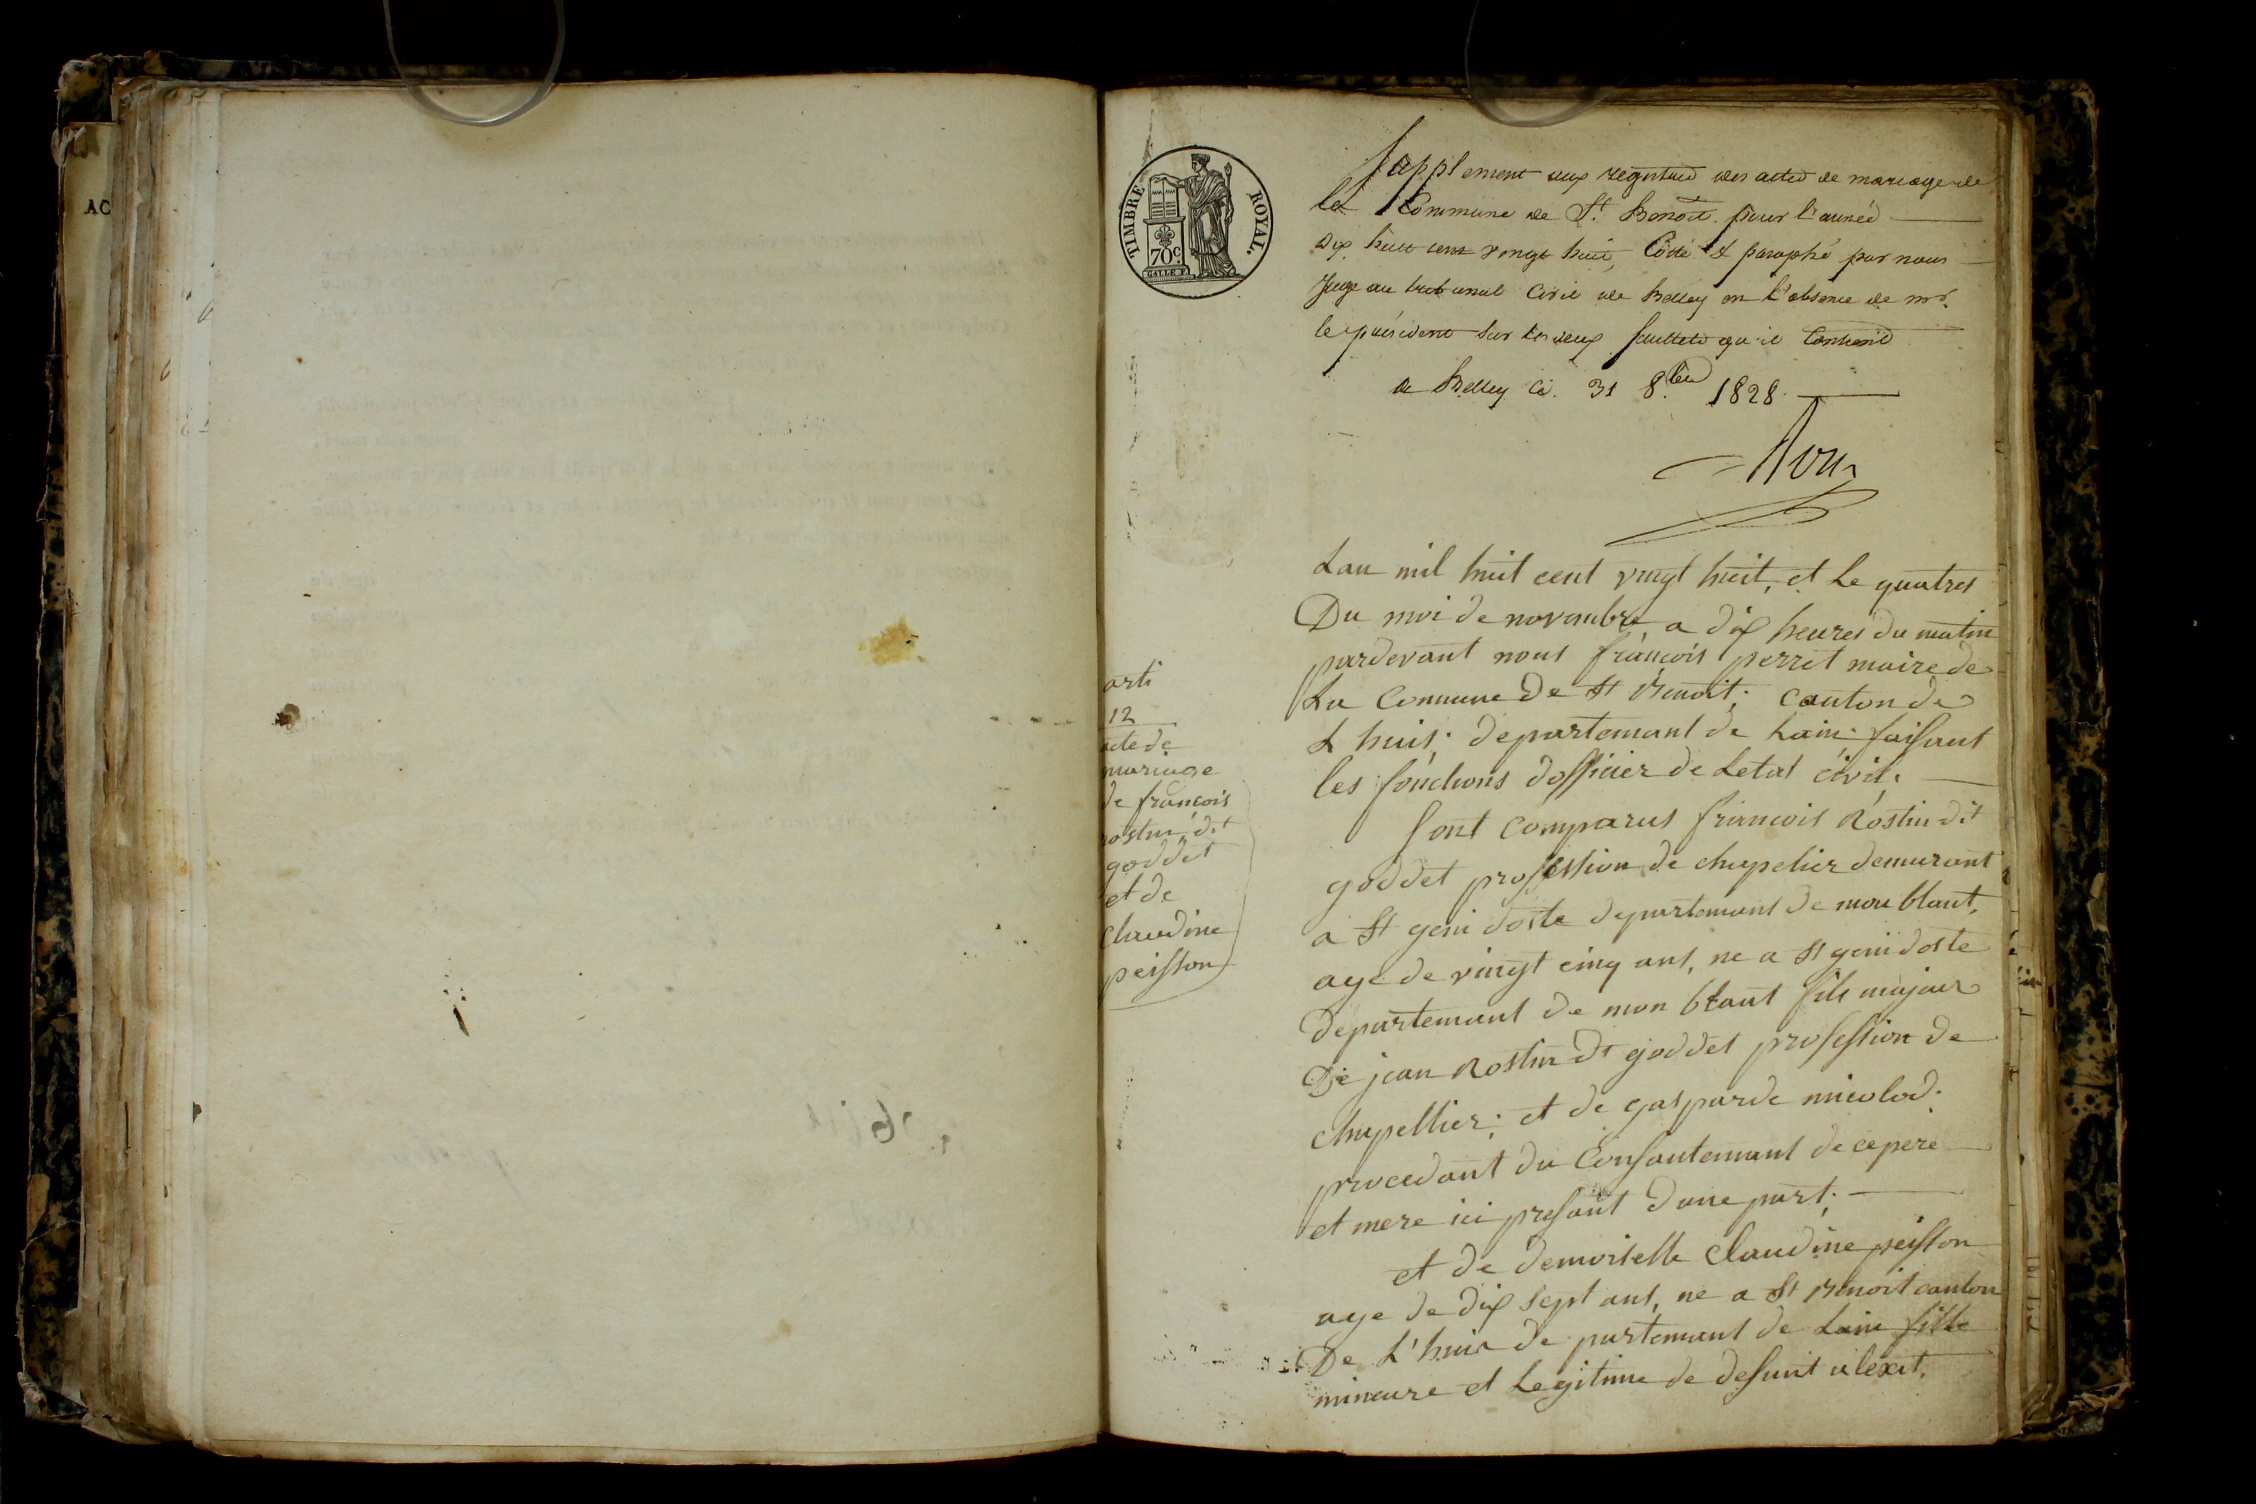 AC
TIMBRE ROYAL.
70c.
GALLE F.
Supplement aux registres des actes de mariage de
la Commune de St. Benoit pour l'année
dix huit cent vingt huit, Coté & paraphé par nous
Juge au tribunal Civil de Belley en l'absence de mr.
le président sur les deux feuillets qu'il contient
a Belley le 31 8.bre 1828.
Lan mil huit cent vingt huit, et le quatres
Du moi de novambre, a dix heures du matin
pardevant nous françois perret maire de
La Commune De St Benoit; canton de
L huis; departemant de Lain; faisant
les fonctions dofficier de Letat civil;
Sont comparus francois Rostin dit
goddet profession de chapelier demurant
a St geni doste departemant de mon blant,
age de vingt cinq ans, ne a St geni doste
Departemant de mon blant fils majeur
De jean Rostin dt goddet profession de
chapellier; et de gasparde micolod.
procedant du Consantemant de ce pere
et mere ici presant dune part;
et de demoiselle Claudine peisson
age de dix sept ans, ne a St Benoit canton
De L'huis de partemant de Lain fille
mineure et Legitime de defunt alexit,
arti
12
acte de
mariage
de françois
rostin, dit
goddet
et de
Claudine
peisson